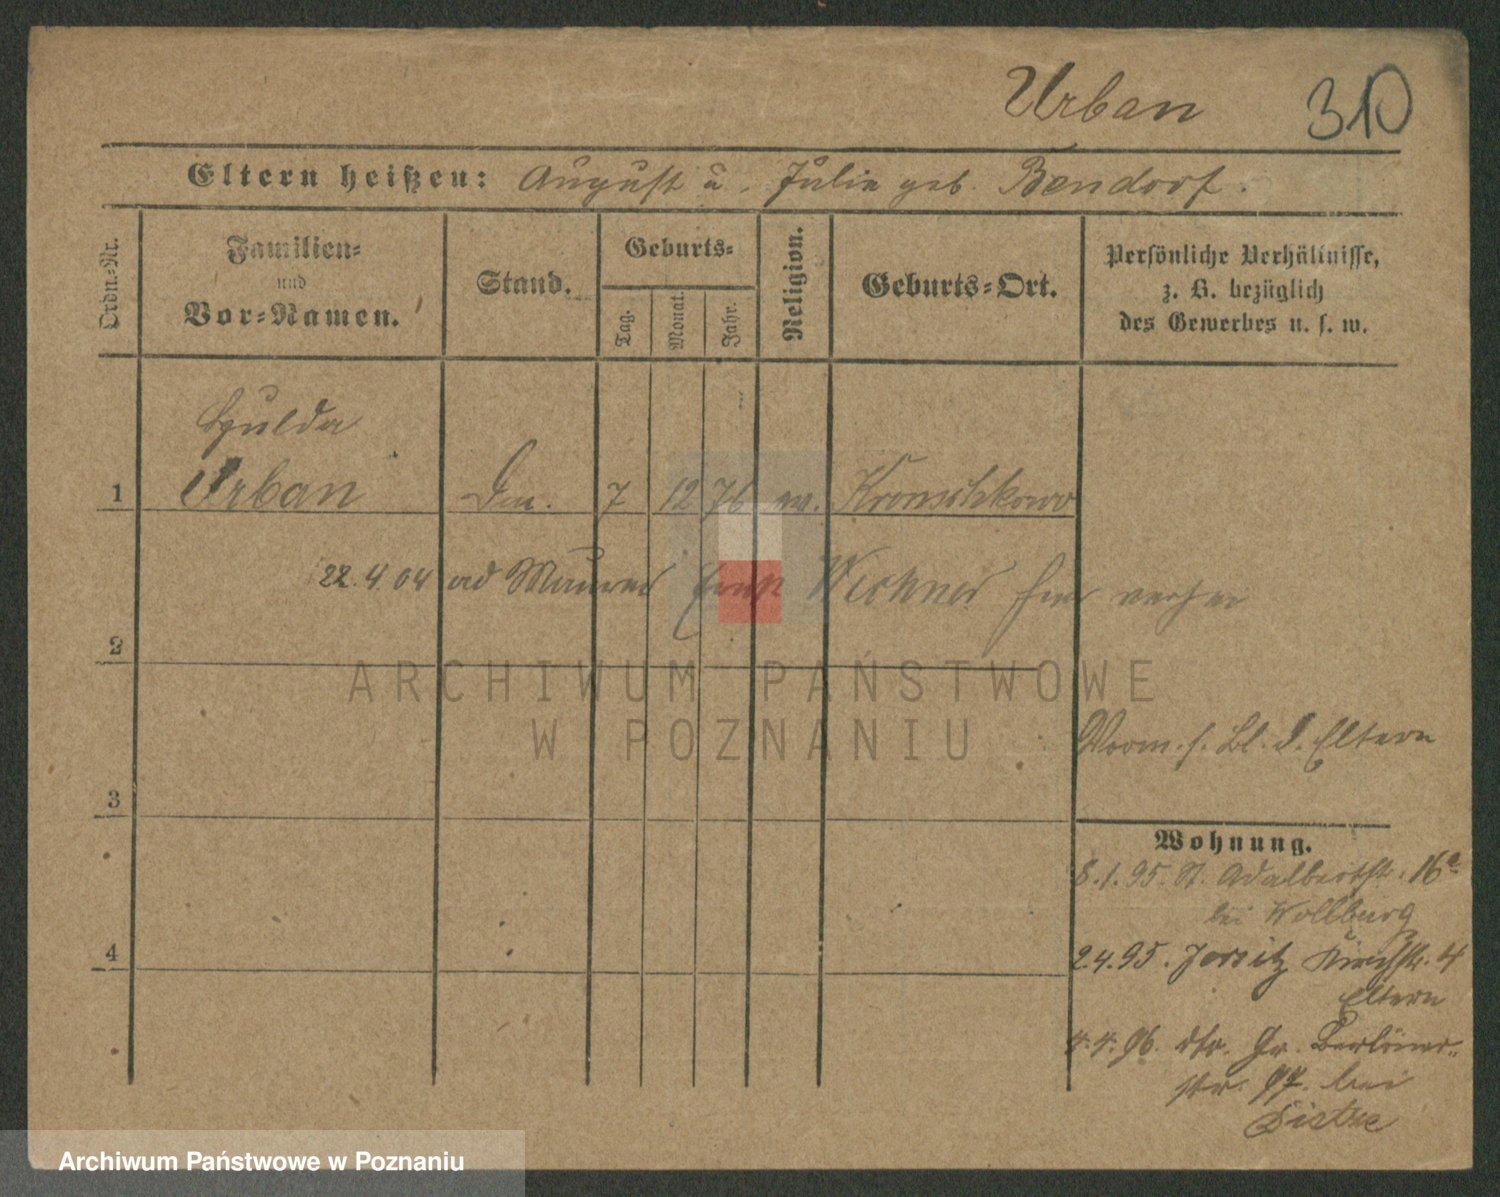 Urban 310
Eltern heißen: August u. Julie geb. Bendorf.
Ordn.-Nr.
Familien-
und
Vor-Namen.
Stand.
Geburts-
Tag.
Monat.
Jahr.
Religion.
Geburts-Ort.
Persönliche Verhältnisse,
z. B. bezüglich
des Gewerbes u. s. w.
Hulda
1 Urban 7 12 76 ev.
22.4.04 ad Maurer hier
2
ARCHIWUM PAŃSTWOWE
W POZNANIU
Vorm. s. Bl. d. Eltern
3
Wohnung.
8.1.95. St. Adalbertstr. 16a
bei Wollburg
4
2.4.95. Jersitz Kirchstr. 4
Eltern
4.4.96. dto. Gr. Berliner-
str. 97 bei
Archiwum Państwowe w Poznaniu